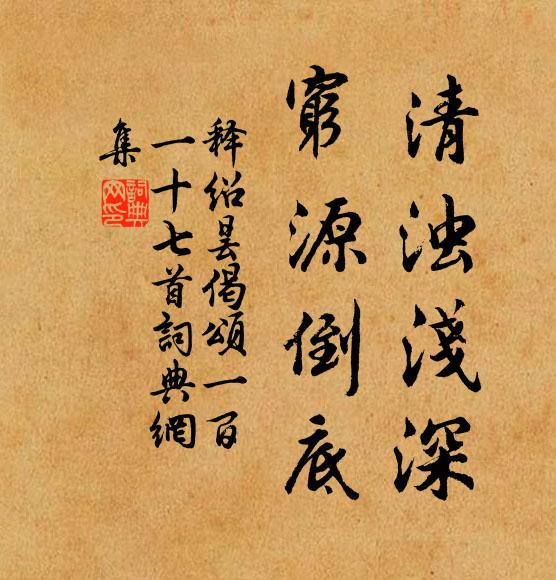 清浊淺深
窮源倒底
释绍昙偈頌一百
一十七首詞典網
集
詞典网印